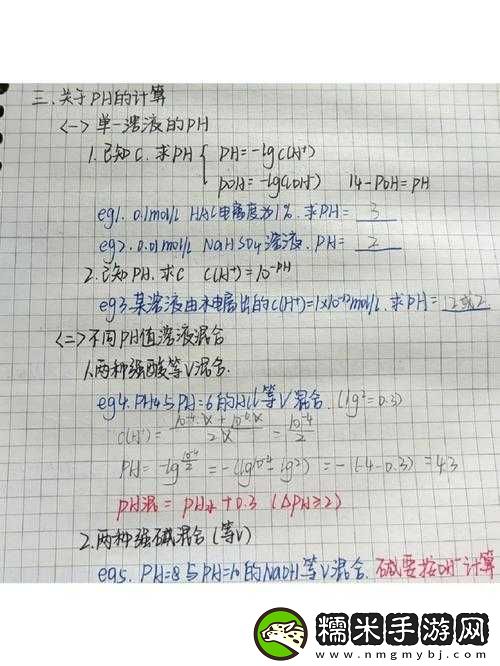 三.关于PH的计算
<一>单一溶液的PH
1.已知C.求PH { PH=-lgc(H⁺)
POH=-lgc(OH⁻) 14-POH=PH
eg1. 0.1mol/L HAc电离度为1%. 求PH= 3
eg2. 0.01mol/L NaHSO₄溶液. PH= 2
2.已知PH.求C C(H⁺)=10⁻ᴾᴴ
eg3.某溶液由水电离出的c(H⁺)=1×10⁻¹²mol/L.求PH= 12或2
<二>不同PH值溶液混合
1.两种强酸等V混合.
eg4. PH=4与PH=6的HCl等V混合. (lg²=0.3)
C(H⁺)= = 10⁻⁴/2
PH=-lg 10⁻⁴/2 =-(lg10⁻⁴-lg²)=-(-4-0.3)=4.3
PH混=PH小+0.3 (ΔPH≥2)
2.两种强碱混合(等V)
eg5. PH=8与PH=10的NaOH等V混合. 碱要按OH⁻计算
糯米手游网
www.nmgmybj.com